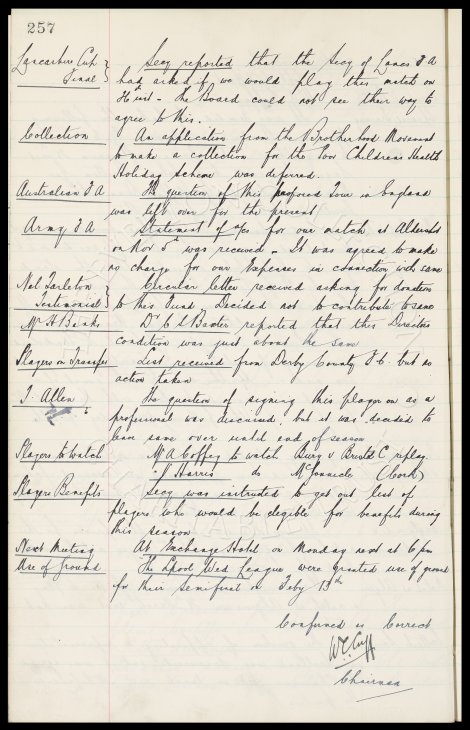 257
Lancashire Cup Final } Secy reported that the Secy of Lancs F A
had asked if we would play this match on
The Board could not see their way to
agree to this.
Collection An application from the Brotherhood Movement
to make a collection for the Poor Childrens Health
Holiday Scheme was deferred.
Australian F A The question of this proposed Tour in England
was left over for the present
Army F A Statement of a/cs for our match at Aldershot
on Nov 5th was received - It was agreed to make
no charge for our Expenses in connection with same
Nel Tarleton Testimonial } Circular letter received asking for donation
to this Fund. Decided not to contribute to same
Mr H Banks Dr C S Baxter reported that this Directors
condition was just about the same
Players on Transfer List received from Derby County F.C. but no
action taken
J. Allen The question of signing this player on as a
professional was discussed, but it was decided to
leave same over until end of season
Players to Watch Mr A Coffey to watch Bury v Bristol C replay
" J Harris do (Cork)
Players Benefits Secy was instructed to get out list of
players who would be elegible for benefits during
this season
Next Meeting At Exchange Hotel on Monday next at 6 pm
Use of Ground The Lpool Wed League were granted use of ground
for their semifinal on Feby 13th
Confirmed as Correct
W.C. Cuff
Chairman